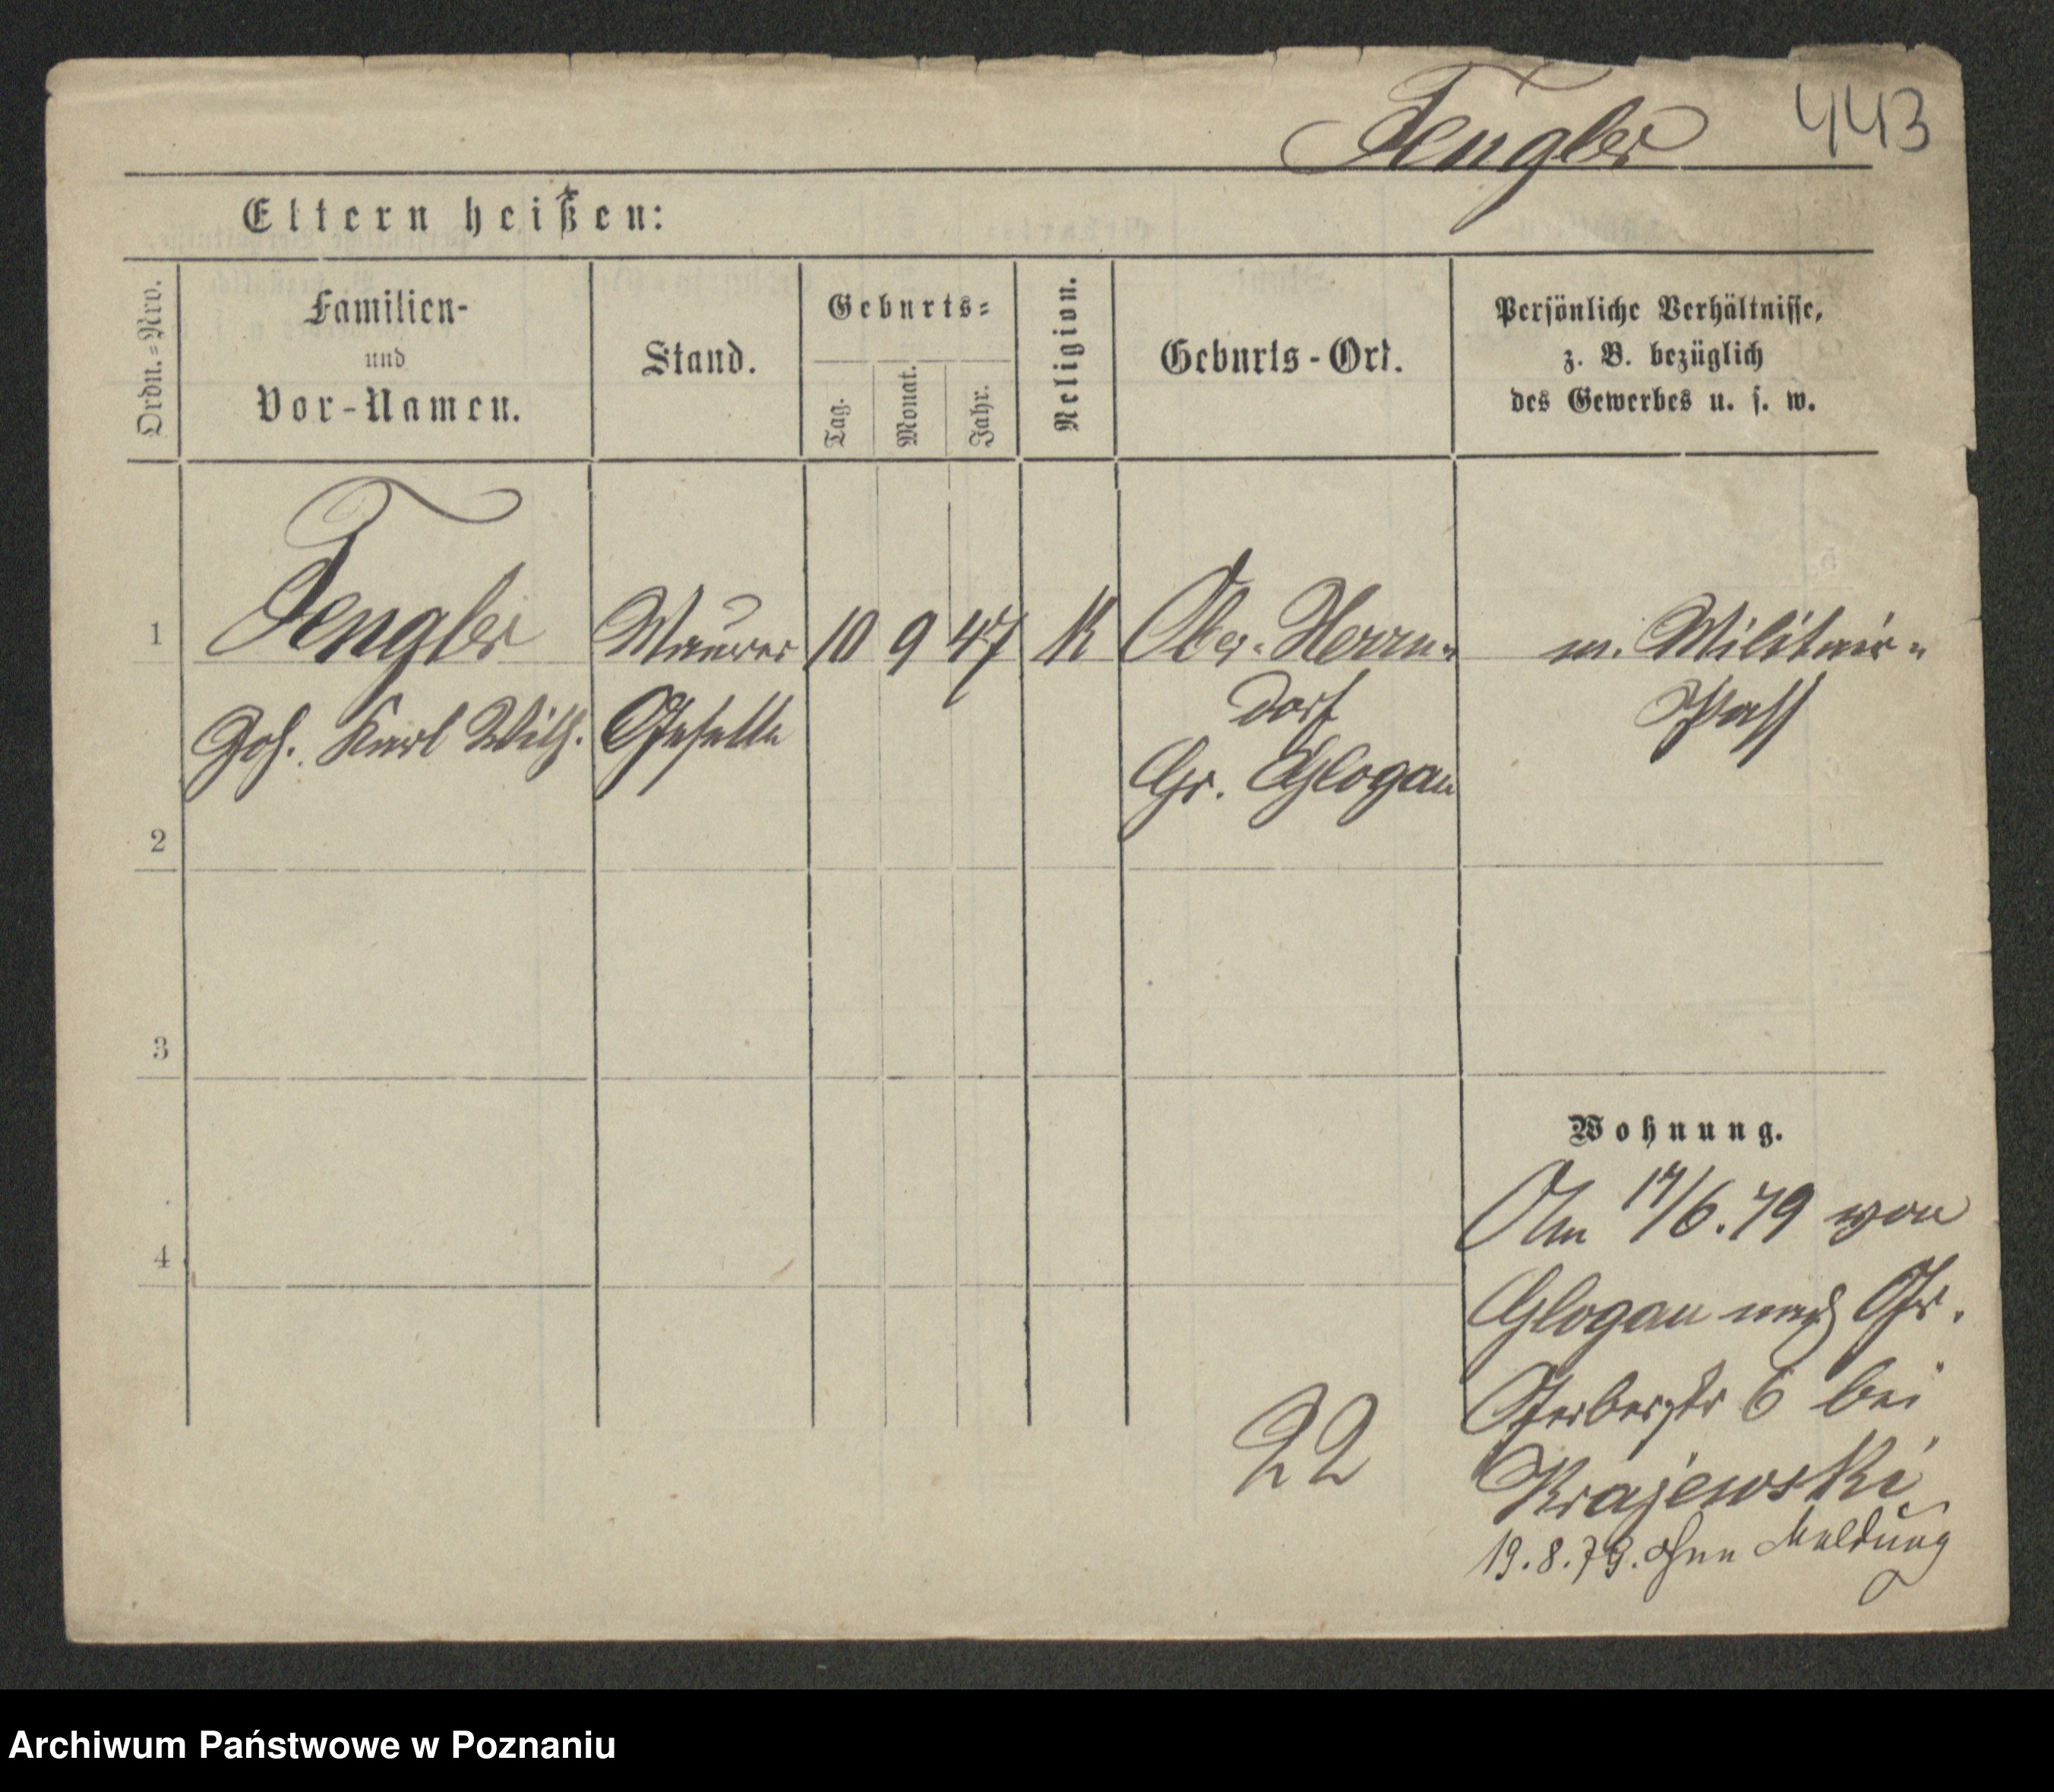 Fengler 443
Eltern heißen:
Ordn.=Nro.
Familien-
und
Vor-Namen.
Stand.
Geburts=
Tag.
Monat.
Jahr.
Religion.
Geburts-Ort.
Persönliche Verhältnisse,
z. B. bezüglich
des Gewerbes u. s. w.
1 Fengler Maurer 10 9 47 K Ober-Herrn- m. Militair-
Joh. Karl Wilh. Geselle dorf Pass
Gr. Glogau
2
3
4
Wohnung.
Am 17/6.79 von
Glogau nach Gr.
Gerberstr 6 bei
Krajewski
19.8.79. ohne Meldung
22
Archiwum Państwowe w Poznaniu